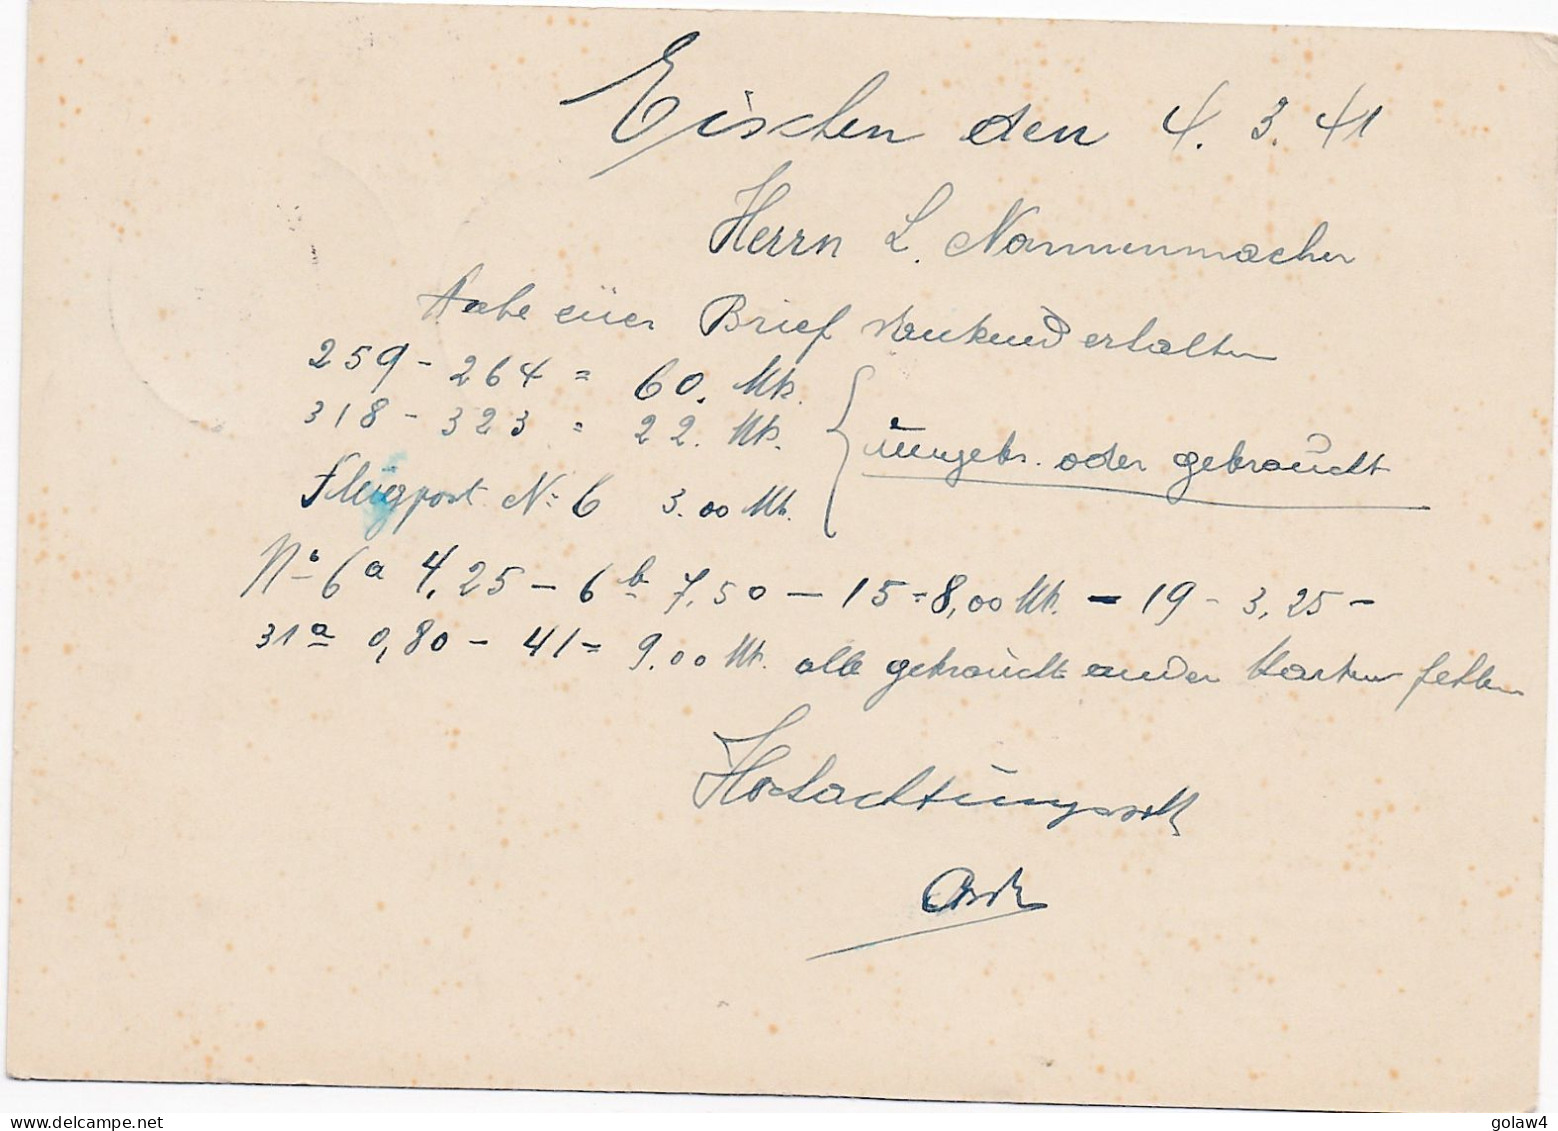 Eischen den 4. 3. 41
Herrn L. Nannenmacher
Habe euer Brief dankend erhalten
259 - 264 = 60. Mk.
318 - 323 = 22. Mk. ungebr. oder gebraucht
Flugpost No 6 3.00 Mk.
No 6a 4,25 – 6b 7,50 – 15 = 8,00 Mk. – 19 – 3,25 –
31a 0,80 – 41 = 9.00 Mk. alle gebraucht ander Karten fehlen
Hochachtungsvoll
delcampe.net
golaw4